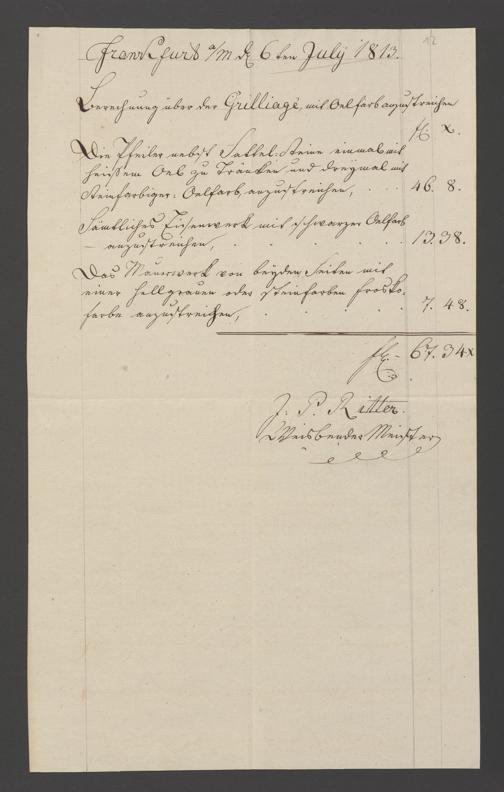 12
Frankfurt a/m d 6ten July 1813.
Berechnung über der Grilliage, mit Oelfarb anzustreichen
fl x.
Die Pfeiler nebst Sattel: Steine einmal mit
heissem Oel zu Tränken und dreymal mit
Steinfarbiger: Oelfarb anzustreichen, . . . 46. 8.
Sämtliches Eisenwerk mit schwarzer Oelfarb
— anzustreichen, . . . . . . 13. 38.
Das Mauerwerk von beyden Seiten mit
einer hellgrauen oder steinfarben
farbe anzustreichen, . . . . . 7. 48.
fl. - 67. 34x
J. P. Ritter.
Weisbender Meister